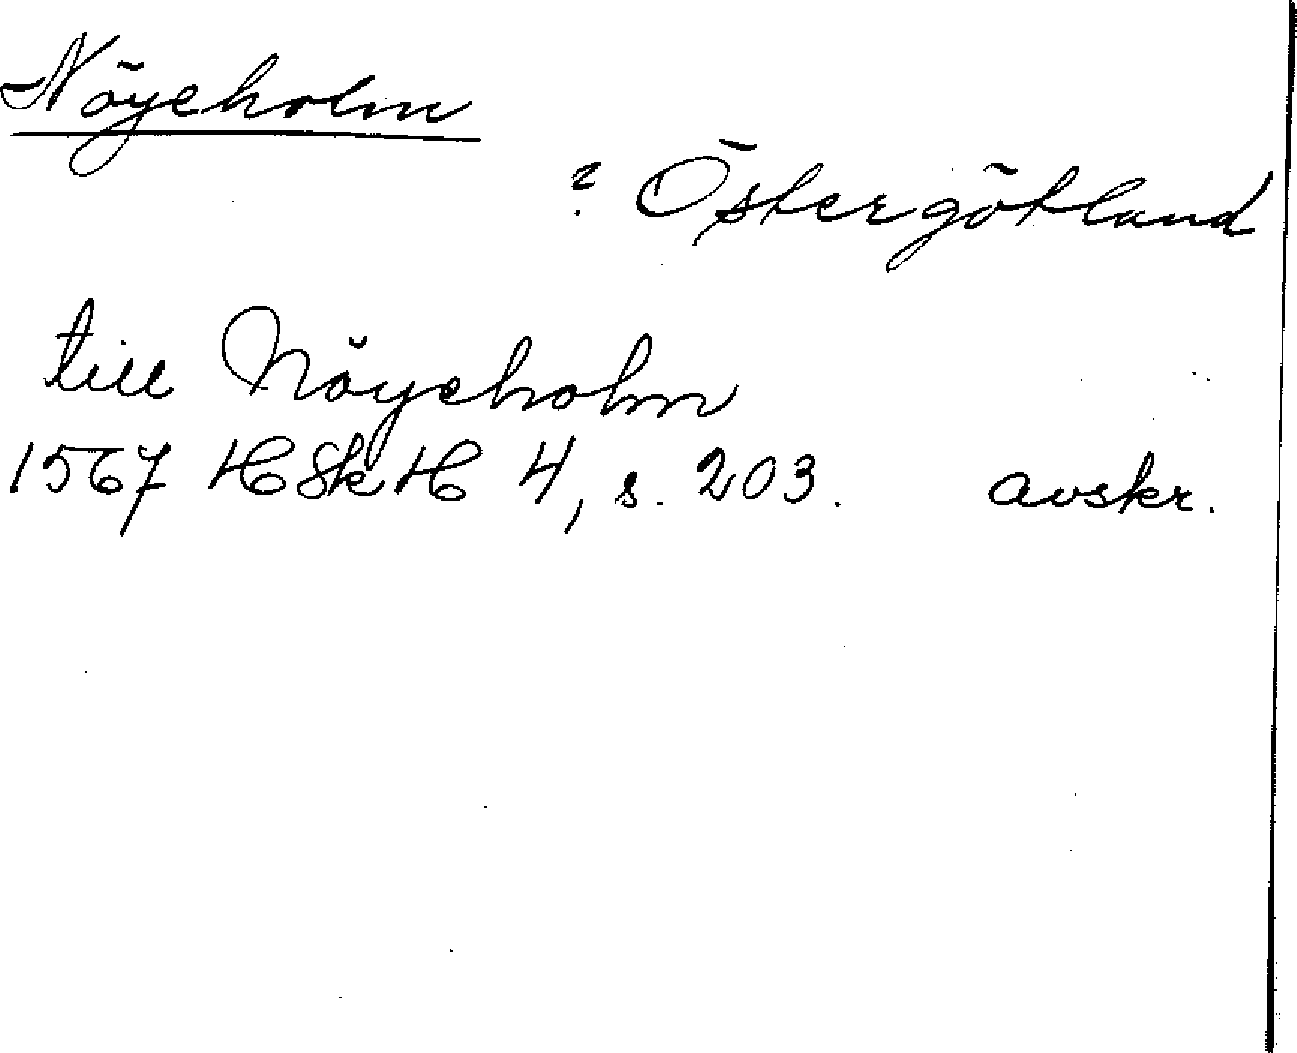 Nöyeholm
? Östergötland
till Nöyeholm
1567 HSkH 4, s. 203. avskr.